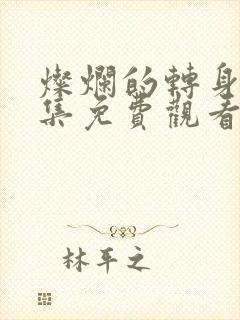 燦爛的轉身
集免費觀看
林平之